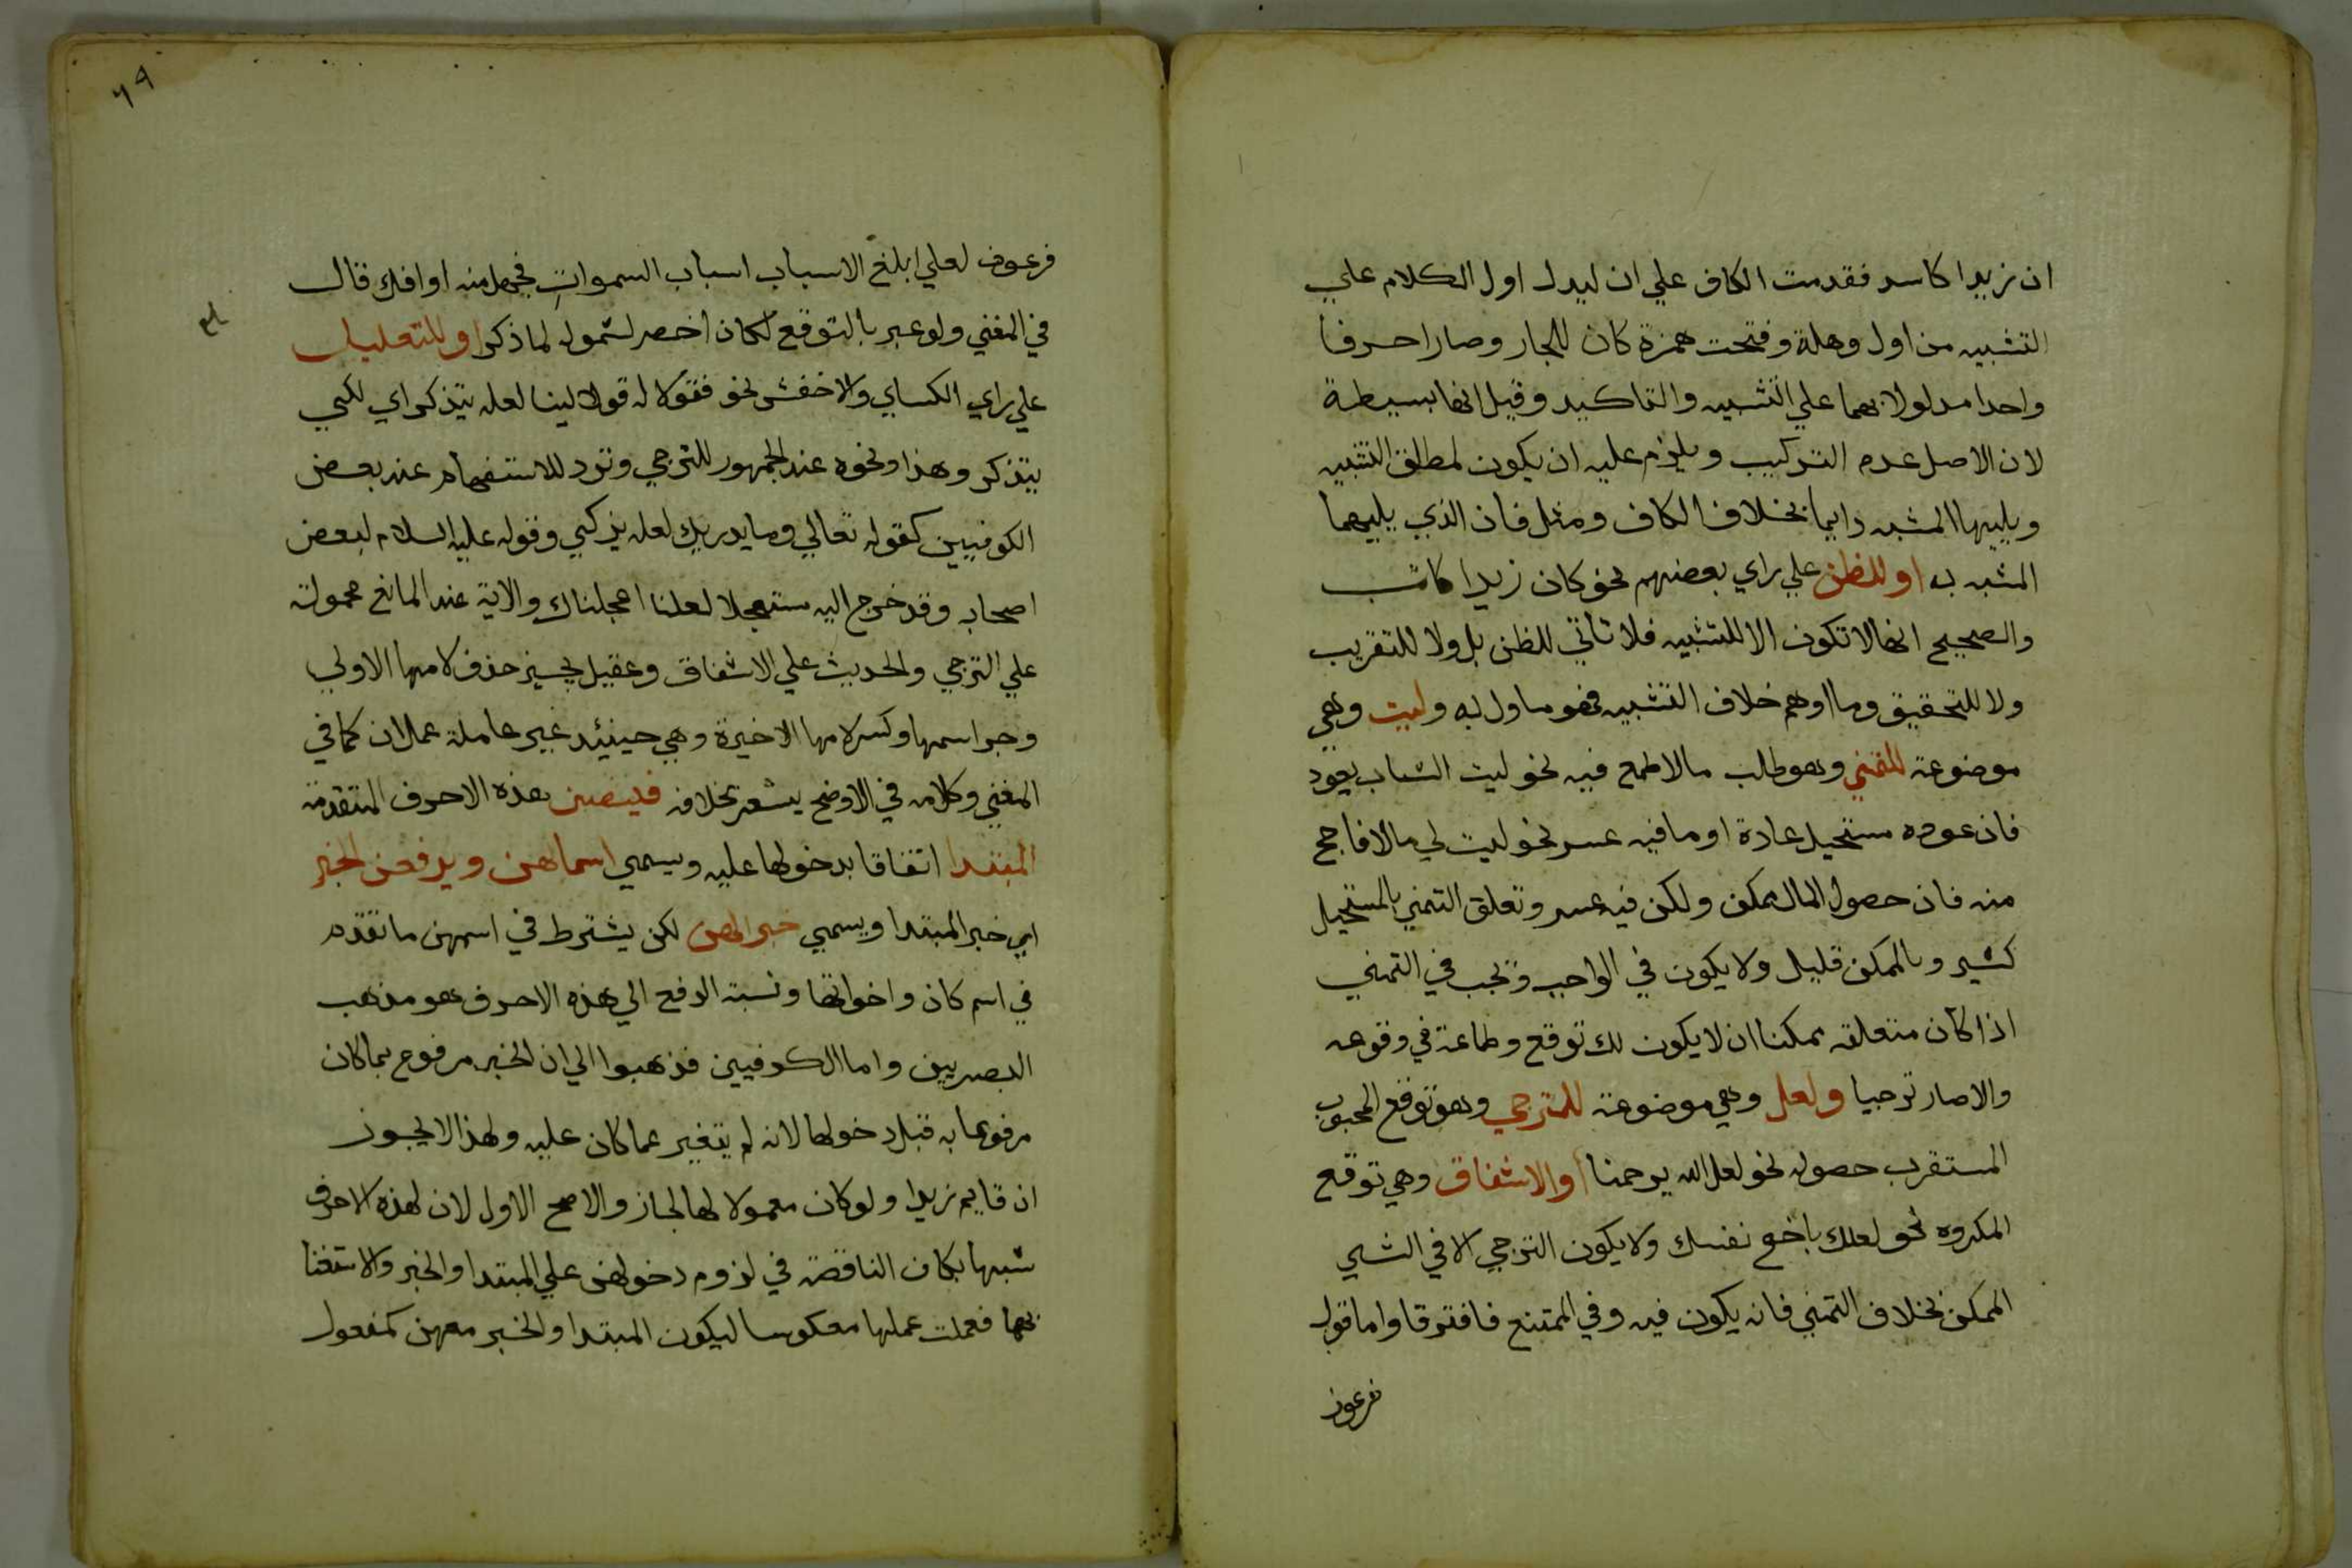 ان زيدا كاسد فقدمت الكاف علي ان ليدل اول الكلام علي
التشبيه من اول وهلة وفتحت همزة كان للجار وصارا حرفا
واحدا مدلولا بهما علي التشبيه والتاكيد وقيل انها بسيطة
لان الاصل عدم التركيب ويلزم عليه ان يكون لمطلق التشبيه
ويليها المشبه دايما بخلاف الكاف ومثل فان الذي يليهما
المشبه به او للظن علي راي بعضهم نحو كان زيدا كاتب
والصحيح انها لا تكون الا للتشبيه فلا تاتي للظن بل ولا للتقريب
ولا للتحقيق وما اوهم خلاف التشبيه فهو ماول به وليت وهي
موضوعة للتمني وهو طلب ما لا طمع فيه نحو ليت الشباب يعود
فان عوده مستحيل عادة او ما فيه عسر نحو ليت لي مالا فاحج
منه فان حصول المال ممكن ولكن فيه عسر وتعلق التمني بالمستحيل
كثير وبالممكن قليل ولا يكون في الواجب ويجب في التمني
اذا كان متعلقه ممكنا ان لا يكون لك توقع وطماعة في وقوعه
والا صار ترجيا ولعل وهي موضوعة للترجي وهو توقع المحبوب
المستقرب حصوله نحو لعل الله يرحمنا والاشفاق وهي توقع
المكروه نحو لعلك باخع نفسك ولا يكون الترجي الا في الشي
الممكن بخلاف التمني فانه يكون فيه وفي الممتنع فافترقا واما قول
فرعون
٦٩
فرعون لعلي ابلغ الاسباب اسباب السموات فجهل منه او افك قال
في المغني ولو عبر بالتوقع لكان اخصر لشموله لما ذكر او للتعليل
علي راي الكساي والاخفش نحو فقولا له قولا لينا لعله يتذكر اي لكي
يتذكر وهذا ونحوه عند الجمهور للترجي وترد للاستفهام عند بعض
الكوفيين كقوله تعالي وما يدريك لعله يزكي وقوله عليه السلام لبعض
اصحابه وقد خرج اليه مستعجلا لعلنا اعجلناك والاية عند المانع محمولة
علي الترجي والحديث علي الاشفاق وعقيل يجيز حذف لامها الاولي
وجر اسمها وكسر لامها الاخيرة وهي حينئد غير عاملة عمل ان كما في
المغني وكلامه في الاوضح يشعر بخلافه فينصبن هذه الاحرف المتقدمة
المبتدا اتفاقا بدخولها عليه ويسمي اسماهن ويرفعن الخبر
اي خبر المبتدا ويسمي خبرا لهن لكن يشترط في اسمهن ما تقدم
في اسم كان واخواتها ونسبة الرفع الي هذه الاحرف هو مذهب
البصريين واما الكوفيين فذهبوا الي ان الخبر مرفوع بما كان
مرفوعا به قبل دخولها لانه لم يتغير عما كان عليه ولهذا لا يجوز
ان قايم زيدا ولو كان معمولا لها لجاز والاصح الاول لان لهذه الاحرف
شبها بكان الناقصة في لزوم دخولهن علي المبتدا والخبر والاستغنا
بهما فعملت عملها معكوسا ليكون المبتدا والخبر معهن كمفعول